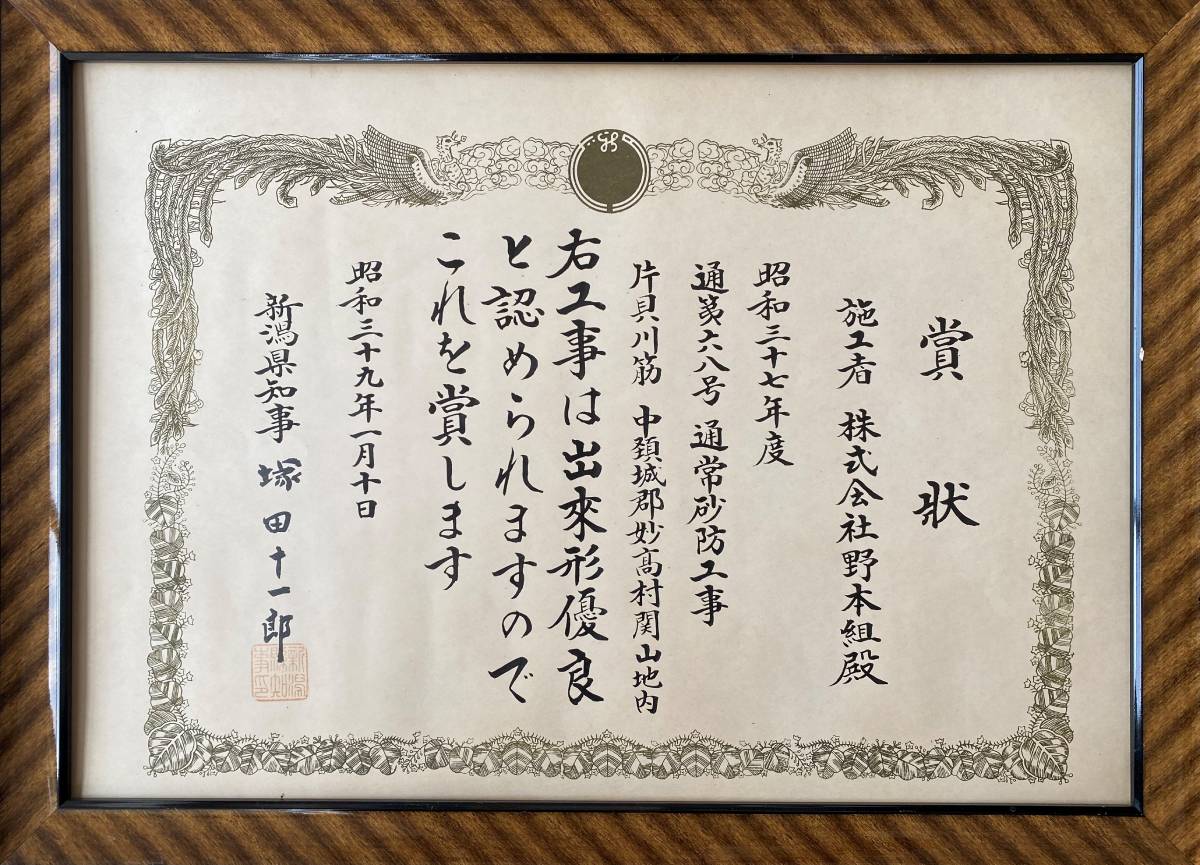 賞状
施工者 株式会社野本組殿
昭和三十七年度
通第六八号 通常砂防工事
片貝川筋 中頚城郡妙高村関山地内
右工事は出來形優良
と認められますので
これを賞します
昭和三十九年一月十日
新潟県知事 塚田十一郎
新潟県知事印